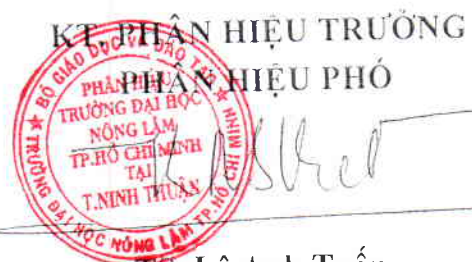 KT. PHÂN HIỆU TRƯỞNG
PHÂN HIỆU PHÓ
BỘ GIÁO DỤC VÀ ĐÀO TẠO
PHÂN HIỆU
TRƯỜNG ĐẠI HỌC
NÔNG LÂM
TP.HỒ CHÍ MINH
TẠI
T.NINH THUẬN
TRƯỜNG ĐẠI HỌC NÔNG LÂM TP.HỒ CHÍ MINH
TS. Lê Anh Tuấn